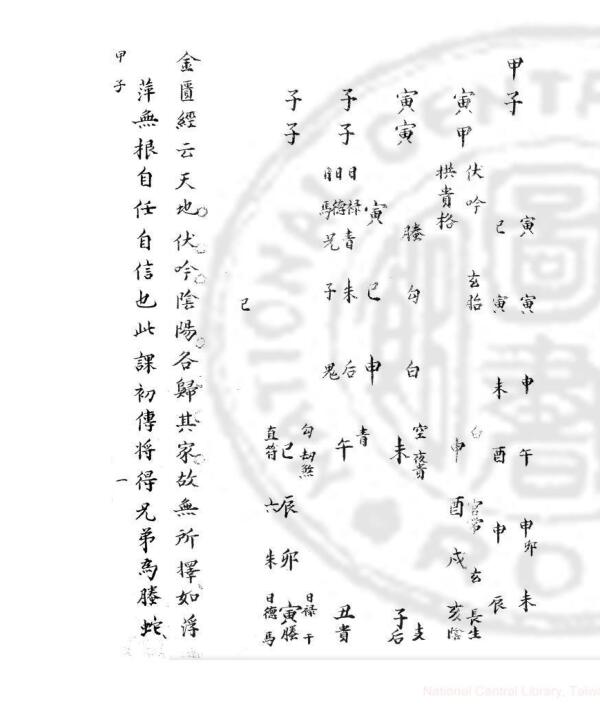 甲子
寅 寅 申 午 申卯 未
巳 寅 未 酉 申 辰
伏吟 玄胎 白 官常 玄 長生
寅甲 申 酉 戌 亥陰
拱貴格
寅寅 螣 勾 白 空 夜貴 未 子后 支
寅 巳 申 青
子子 日祿 青 未 后 午 丑貴
兄 子 鬼
子子 勾劫煞 巳 辰 卯 日祿 干 寅螣
直符 六 朱 日德 馬
巳
金匱經云天地伏吟陰陽各歸其家故無所擇如浮
萍無根自任自信也此課初傳將得兄弟為螣蛇
甲子 一
National Central Library, Taiw